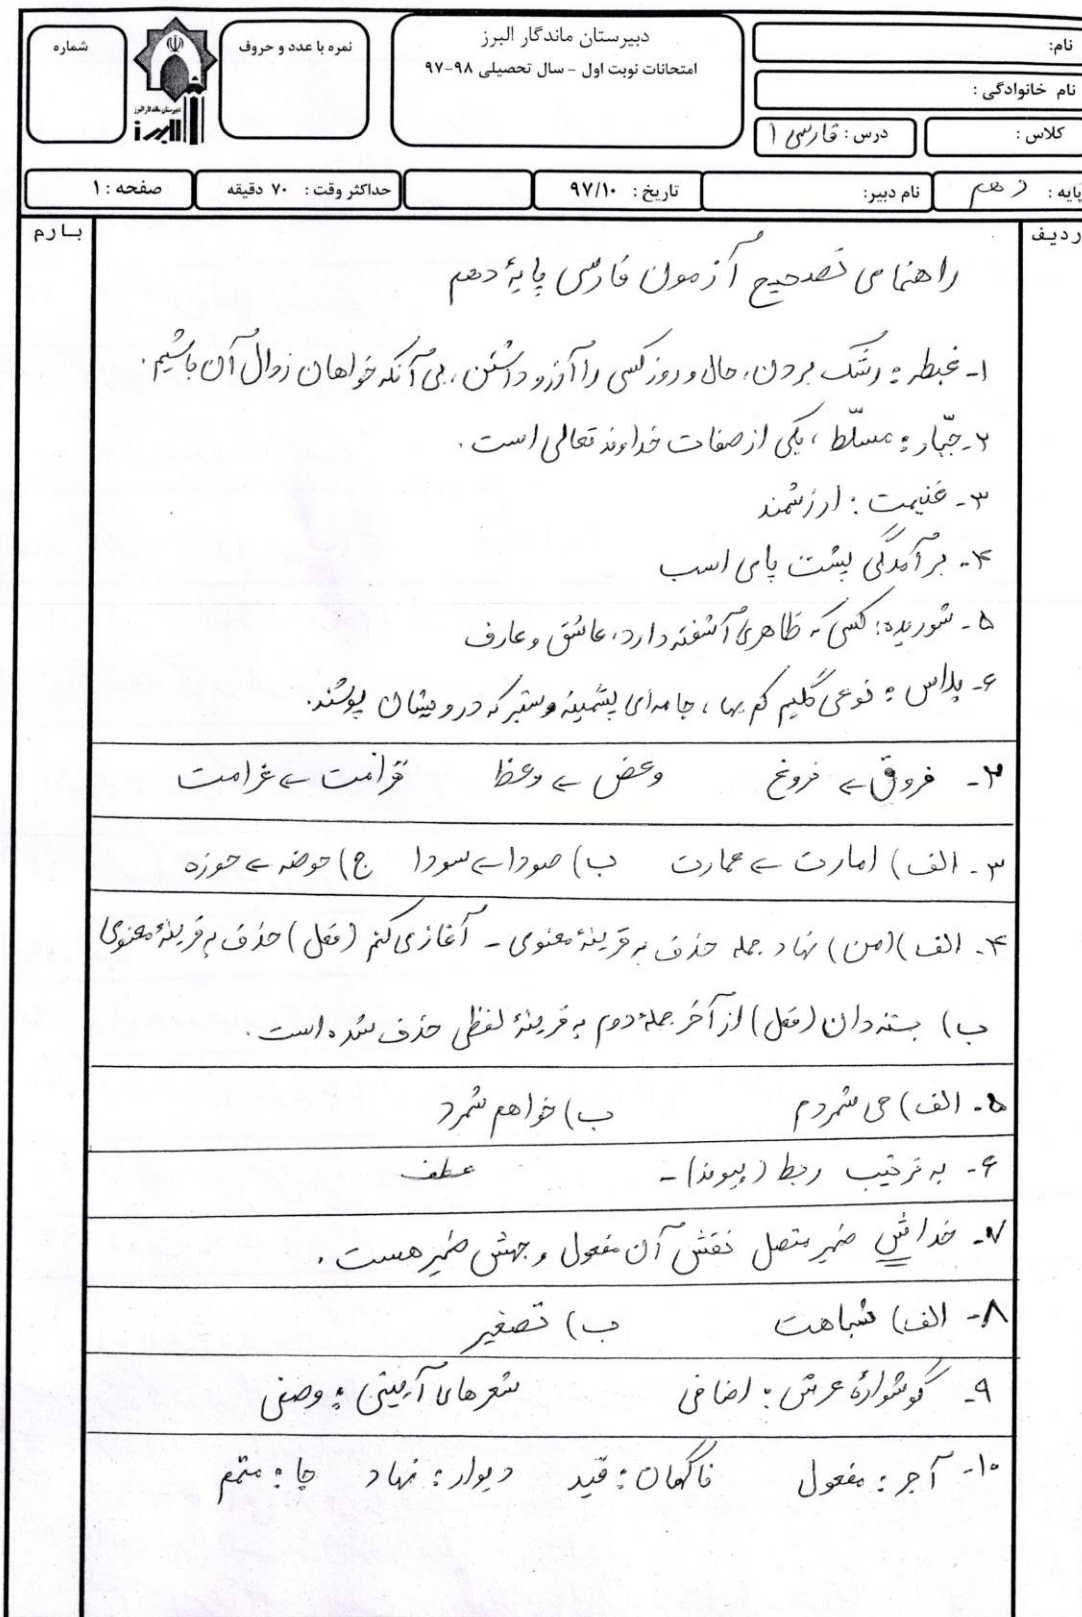 نام:
نام خانوادگی :
کلاس :
درس : فارسی ۱
دبیرستان ماندگار البرز
امتحانات نوبت اول - سال تحصیلی ۹۸-۹۷
نمره با عدد و حروف
دبیرستان ماندگار البرز
البرز
شماره
پایه : دهم
نام دبیر:
تاریخ : ۹۷/۱۰
حداکثر وقت : ۷۰ دقیقه
صفحه : ۱
ردیف
بارم
راهنمای تصحیح آزمون فارسی پایهٔ دهم
۱- غبطه : رشک بردن، حال و روز کسی را آرزو داشتن، بی آنکه خواهان زوال آن باشیم.
۲- جبّار : مسلّط ، یکی از صفات خداوند تعالی است .
۳- غنیمت : ارزشمند
۴- برآمدگی پشت پای اسب
۵- شوریده: کسی که ظاهری آشفته دارد، عاشق و عارف
۶- پلاس : نوعی گلیم کم بها ، جامه‌ای پشمینه و ستبر که درویشان پوشند.
۲- فروق ← فروغ وعض ← وعظ قرامت ← غرامت
۳- الف) امارت ← عمارت ب) صودا ← سودا ج) حوضه ← حوزه
۴- الف) (من) نهاد جمله حذف به قرینهٔ معنوی - آغاز می کنم (فعل) حذف به قرینهٔ معنوی
ب) بسته دان (فعل) از آخر جملهٔ دوم به قرینهٔ لفظی حذف شده است .
۵- الف) می شمردم ب) خواهم شمرد
۶- به ترتیب ربط (پیوند) - عطف
۷- خداش ضمیر متصل نقش آن مفعول و جهش ضمیر هست .
۸- الف) شباهت ب) تصغیر
۹- گوشوارهٔ عرش : اضافی شعرهای آیینی : وصفی
۱۰- آجر : مفعول ناگهان : قید دیوار : نهاد جا : متمم